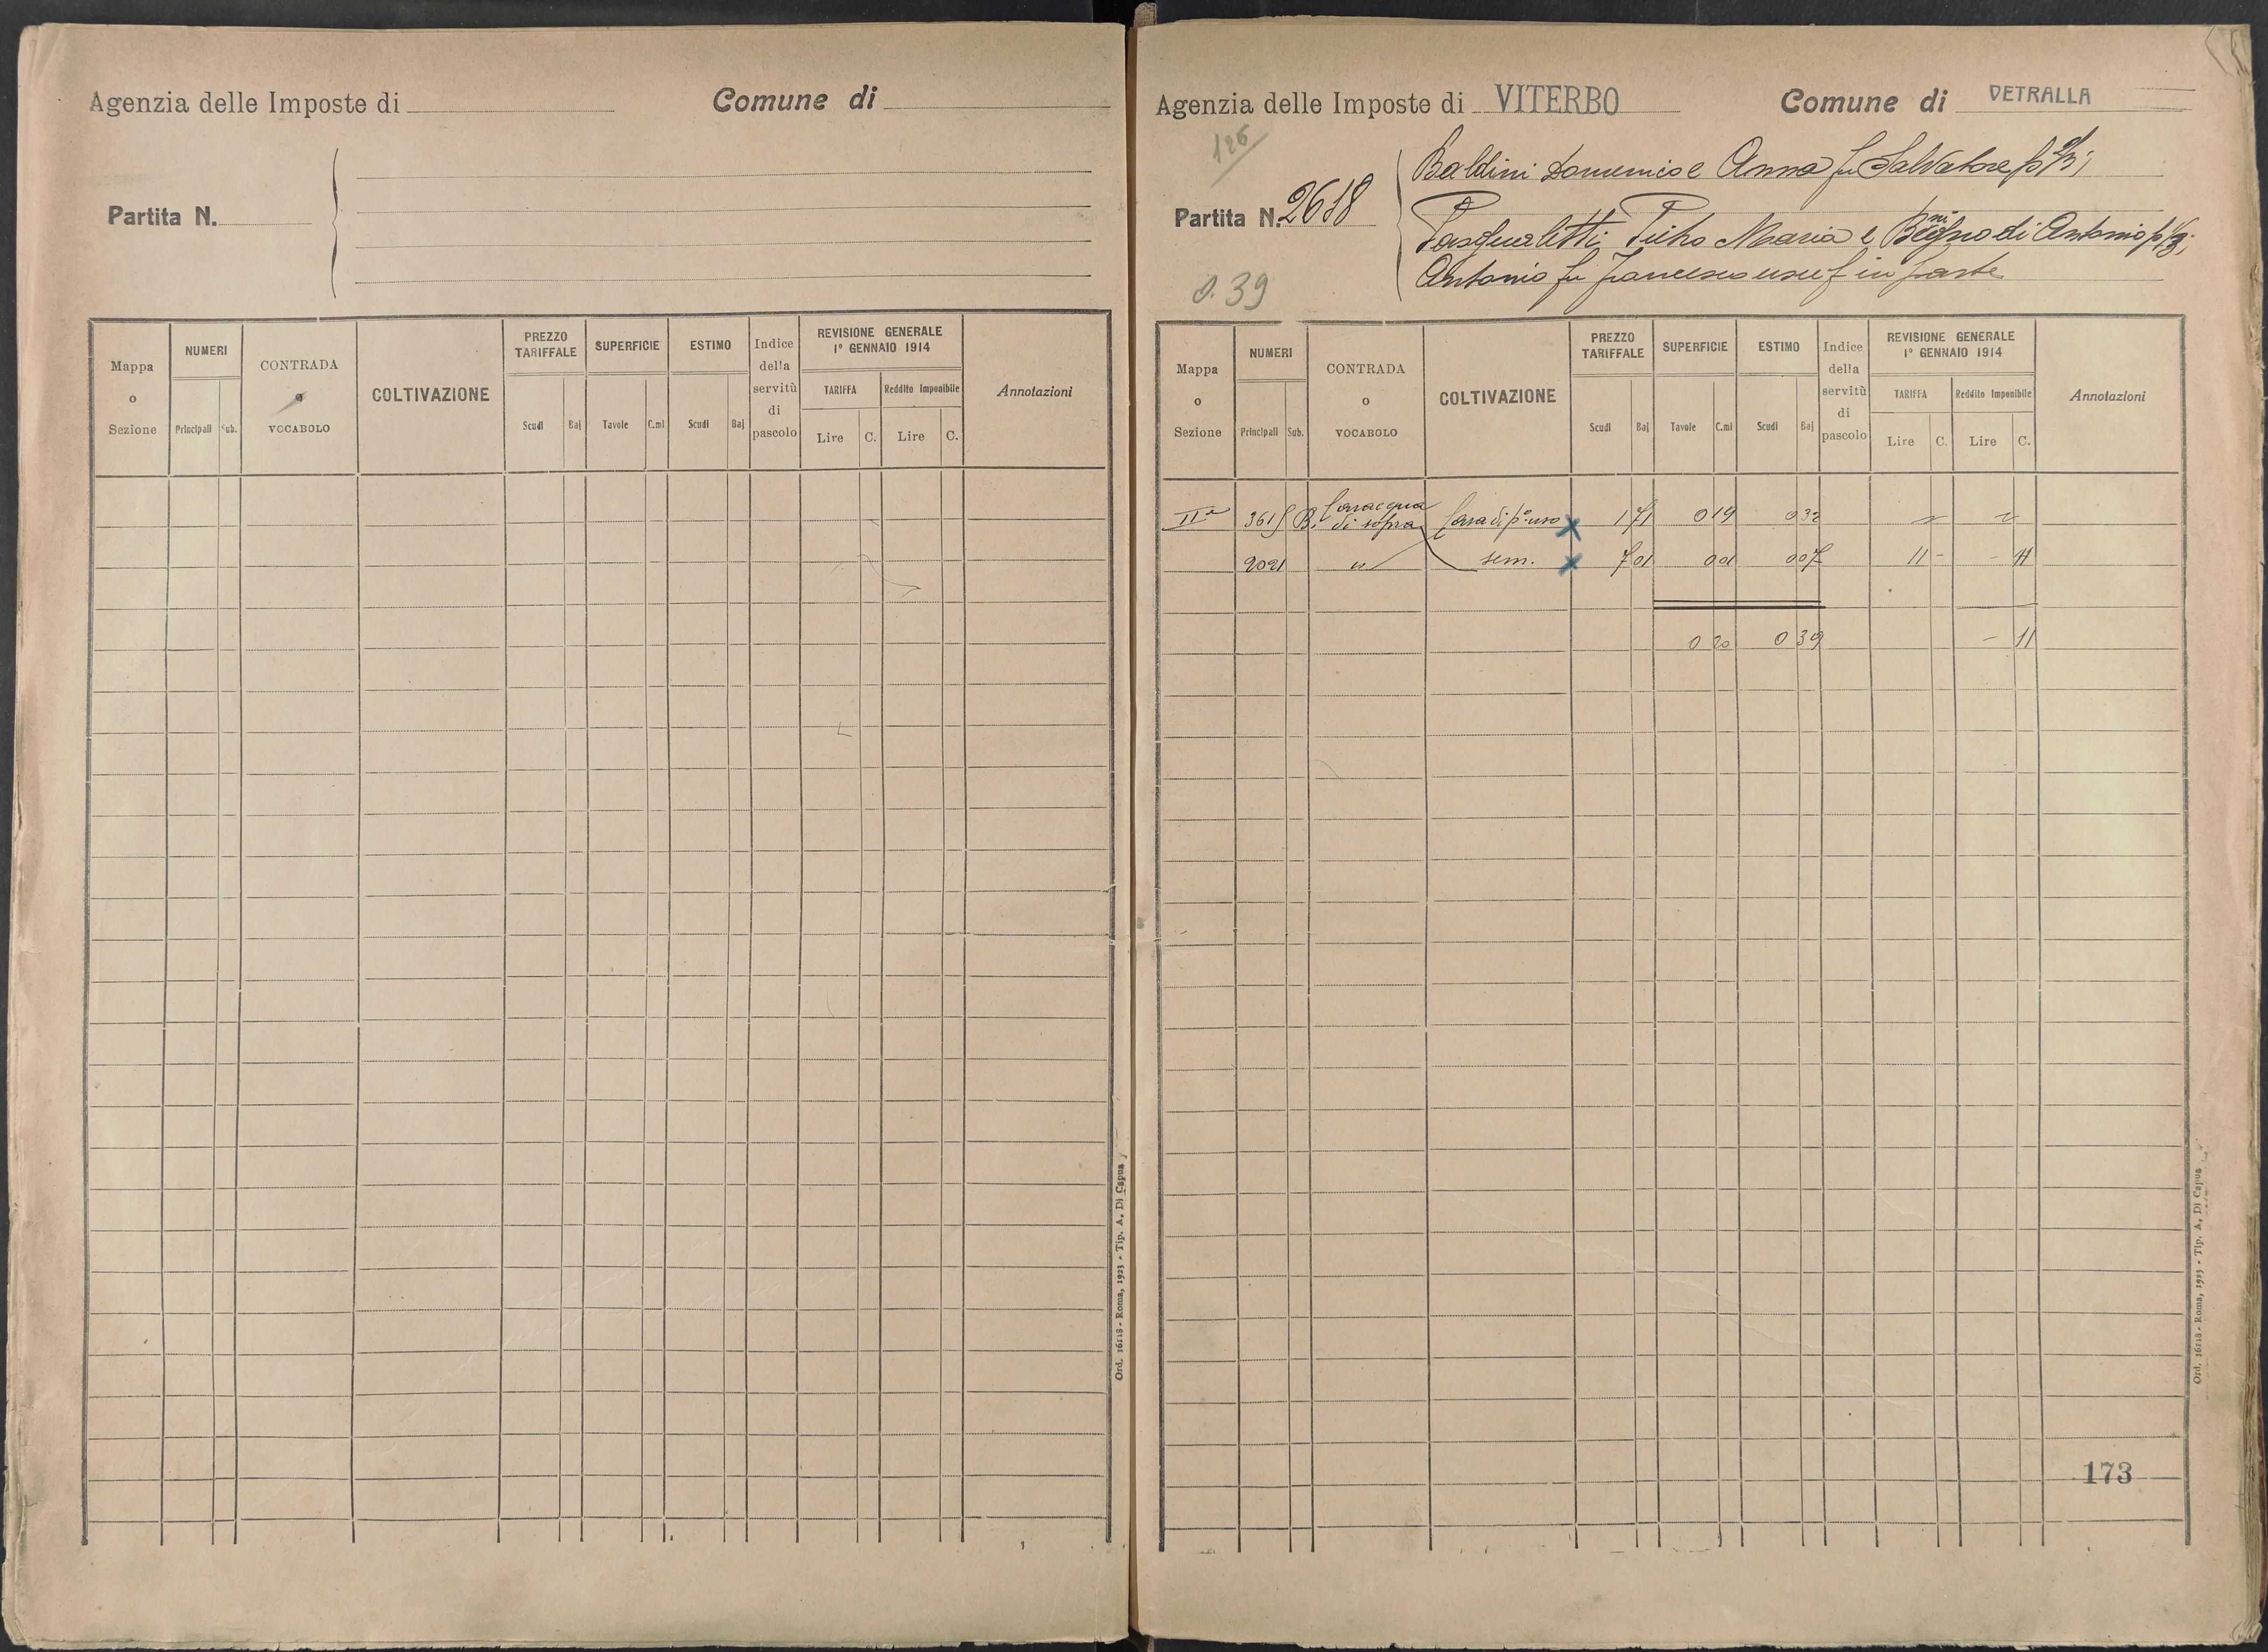 Agenzia delle Imposte di Comune di
Partita N.
Mappa o Sezione
NUMERI
Principali Sub.
CONTRADA o VOCABOLO
COLTIVAZIONE
PREZZO TARIFFALE
Scudi Baj
SUPERFICIE
Tavole C.mi
ESTIMO
Scudi Baj
Indice della servitù di pascolo
REVISIONE GENERALE
1° GENNAIO 1914
TARIFFA Reddito Imponibile
Lire C. Lire C.
Annotazioni
Ord. 16118 - Roma, 1923 - Tip. A. Di Capua
Agenzia delle Imposte di VITERBO Comune di VETRALLA
126
Partita N. 2618
0.39
Baldini Domenico e Anna fu Salvatore p 2/3;
Pasqualetti Maria e di Antonio p 1/3;
Antonio fu Francesco usuf in parte
Mappa o Sezione
NUMERI
Principali Sub.
CONTRADA o VOCABOLO
COLTIVAZIONE
PREZZO TARIFFALE
Scudi Baj
SUPERFICIE
Tavole C.mi
ESTIMO
Scudi Baj
Indice della servitù di pascolo
REVISIONE GENERALE
1° GENNAIO 1914
TARIFFA Reddito Imponibile
Lire C. Lire C.
Annotazioni
IIa 361 di sopra 1 71 0 19 0 32
2021 " sem. 7 01 0 01 0 07 11 - - 11
0 20 0 39 - 11
173
Ord. 16118 - Roma, 1923 - Tip. A. Di Capua